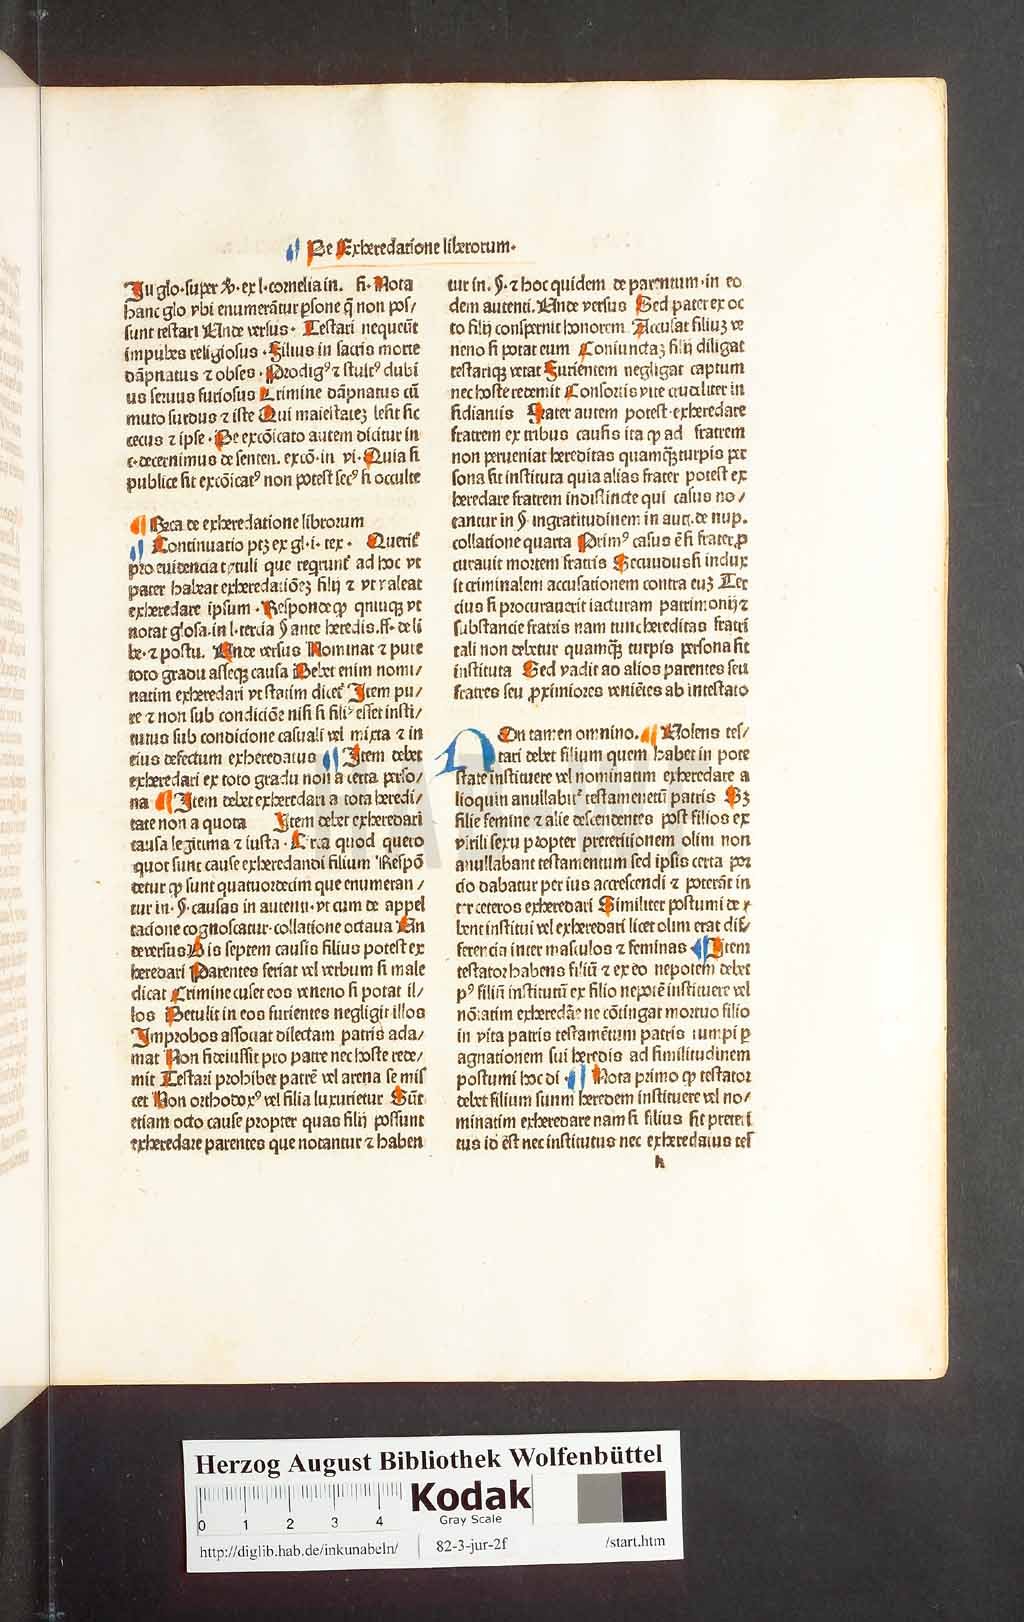 De Exheredatione liberorum.
In glo. super v̄. ex l. cornelia in. fi. Nota
hanc glo vbi enumerātur ꝑsone q̄ non pos/
sunt testari Unde versus. Testari nequeūt
impubes religiosus. Filius in sacris morte
dāpnatus ⁊ obses. Prodigꝰ ⁊ stultꝰ dubi
us seruus furiosus Crimine dāpnatus cū
muto surdus ⁊ iste Qui maiestateꝫ lesit sic
cecus ⁊ ipse. De excōicato autem dicitur in
c. decernimus de senten. excō. in vi. Quia si
publice sit excōicatꝰ non potest secꝰ si occulte
Irca de exheredatione librorum
Continuatio ptꝫ ex gl. i. tex. Querit᷑
pro euidentia tytuli que reqrunt᷑ ad hoc vt
pater habeat exheredatiōeꝫ filij ⁊ vt valeat
exheredare ipsum. Responde ꝙ quiuqꝫ vt
notat glosa. in l. tercia § ante heredis. ff. de li
be. ⁊ postu. Unde versus Nominat ⁊ pure
toto gradu asseqꝫ causa Debet enim nomi/
natim exheredari vt statim dicet᷑ Item pu/
re ⁊ non sub condiciōe nisi si filiꝰ esset insti/
tutus sub condicione casuali vel mixta ⁊ in
eius defectum exheredatus Item debet
exheredari ex toto gradu non a certa perso/
na Item debet exheredari a tota heredi/
tate non a quota Item debet exheredari
causa legitima ⁊ iusta. Circa quod quero
quot sunt cause exheredandi filium Respō
detur ꝙ sunt quatuordecim que enumeran/
tur in. §. causas in autenti. vt cum de appel
lacione cognoscatur. collatione octaua Un
de versus His septem causis filius potest ex
heredari Parentes feriat vel verbum si male
dicat Crimine cuset eos veneno si potat il/
los Detulit in eos furientes negligit illos
Improbos assouat dilectam patris ada/
mat Non fideiussit pro patre nec hoste rede/
mit Testari prohibet patrē vel arena se mis
cet Non orthodoxꝰ vel filia luxurietur Sūt
etiam octo cause propter quas filij possunt
exheredare parentes que notantur ⁊ haben
tur in. §. ⁊ hoc quidem de parentum. in eo
dem autenti. Unde versus Sed pater ex oc
to filij conspernit honorem Accusat filiuꝫ ve
neno si potat eum Coniunctaꝫ filij diligat
testariqꝫ vetat Furientem negligat captum
nec hoste redemit Consortis vite crudeliter in
sidiantis Frater autem potest. exheredare
fratrem ex tribus causis ita ꝙ ad fratrem
non perueniat hereditas quamqꝫ turpis per
sona sit instituta quia alias frater potest ex
heredare fratrem indistincte qui casus no/
tantur in § ingratitudinem in aut. de nup.
collatione quarta Primꝰ casus ē si frater ꝓ
curauit mortem fratris Secundus si indux
it criminalem accusationem contra euꝫ Ter
cius si procurauerit iacturam patrimonij ⁊
substancie fratris nam tunc hereditas fratri
tali non debetur quamqꝫ turpis persona sit
instituta Sed vadit ad alios parentes seu
fratres seu ꝓximiores veniētes ab intestato
NOn tamen omnino. Nolens tes/
tari debet filium quem habet in pote
state instituere vel nominatim exheredare a
lioquin anullabit᷑ testamenetū patris Sꝫ
filie femine ⁊ alie descendentes post filios ex
virili sexu propter preteritionem olim non
anullabant testamentum sed ipsis certa por
cio dabatur per ius accrescendi ⁊ poterāt in
ter ceteros exheredari Similiter postumi de
bent institui vel exheredari licet olim erat dif/
ferencia inter masculos ⁊ feminas Item
testator habens filiū ⁊ ex eo nepotem debet
pꝰ filiū institutū ex filio nepotē instituere vel
nōīatim exheredāe ne cōtingat mortuo filio
in vita patris testamētum patris rumpi ꝑ
agnationem sui heredis ad similitudinem
postumi hoc di Nota primo ꝙ testator
debet filium suum heredem instituere vel no/
minatim exheredare nam si filius sit preteri
tus id ēst nec institutus nec exheredatus tes
h
Herzog August Bibliothek Wolfenbüttel
0 1 2 3 4
Kodak
Gray Scale
http://diglib.hab.de/inkunabeln/ 82-3-jur-2f /start.htm